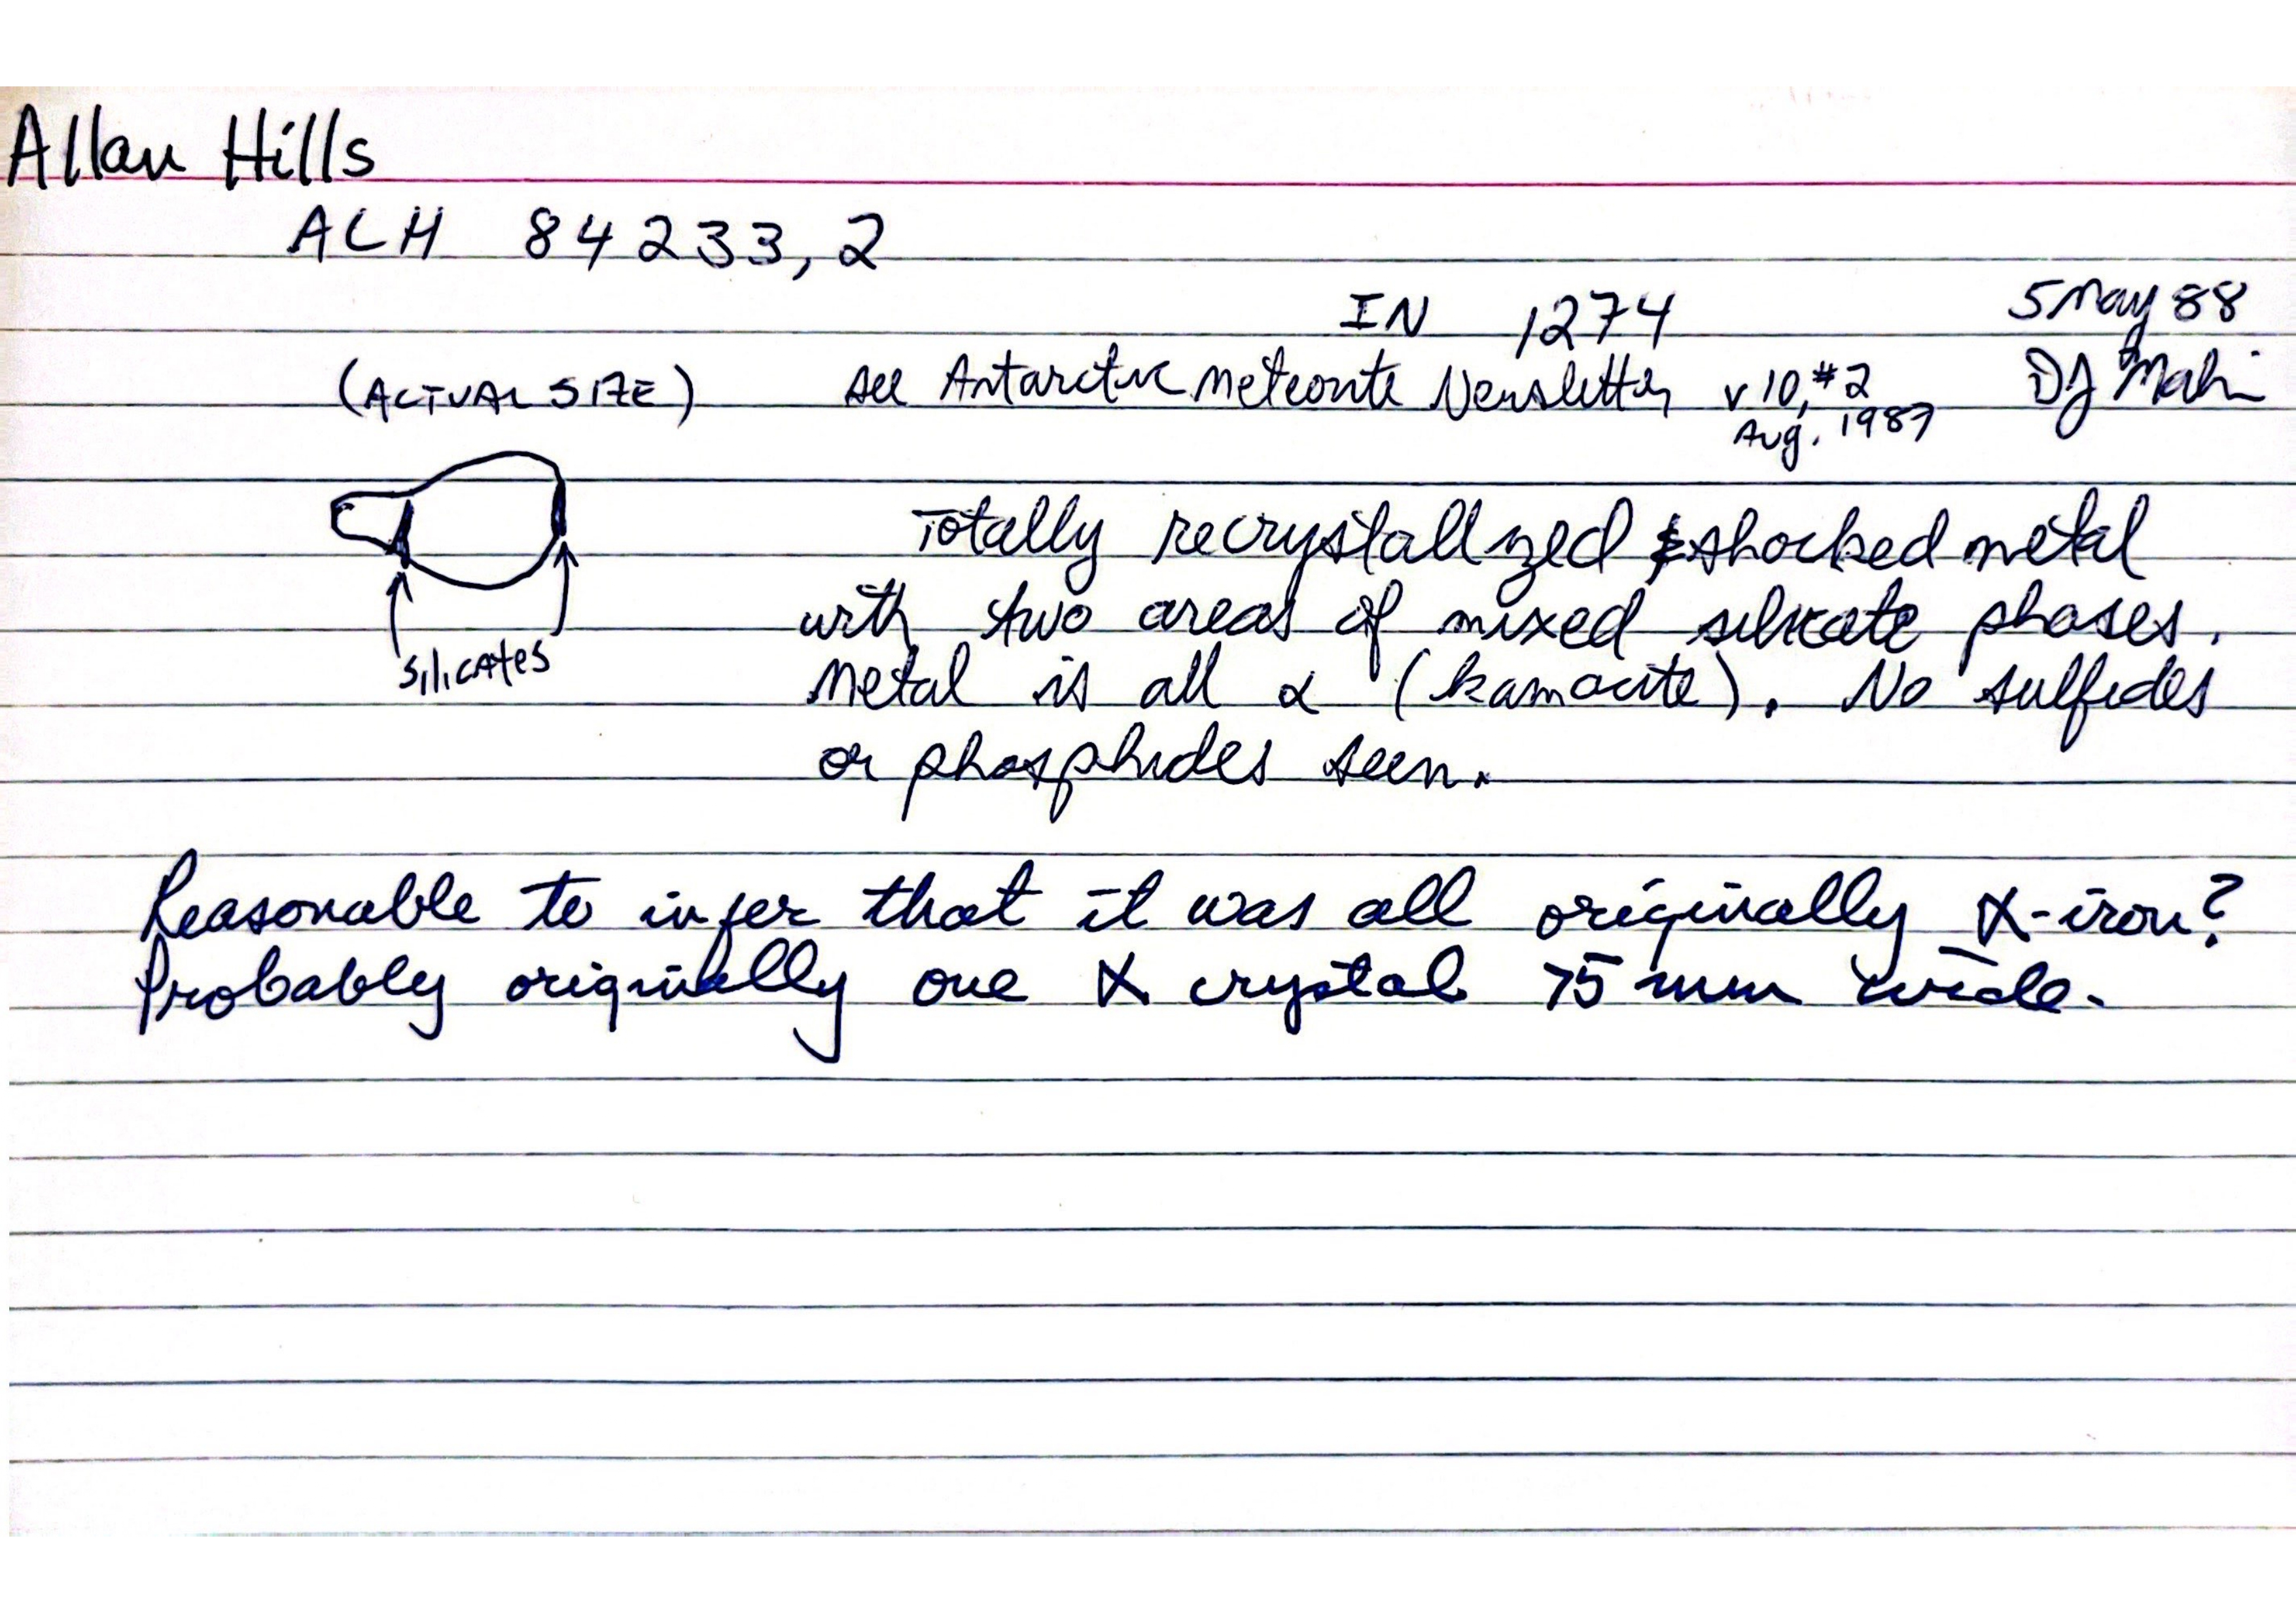 Allan Hills
ALH 84233,2
IN 1274
5 May 88
(ACTUAL SIZE)
see Antarctic Meteorite Newsletter v 10, #2
Aug. 1987
DJ
silicates
Totally recrystallized & shocked metal
with two areas of mixed silicate phases.
Metal is all α (kamacite). No sulfides
or phosphides seen.
Reasonable to infer that it was all originally α-iron?
Probably originally one α crystal >5 mm wide.